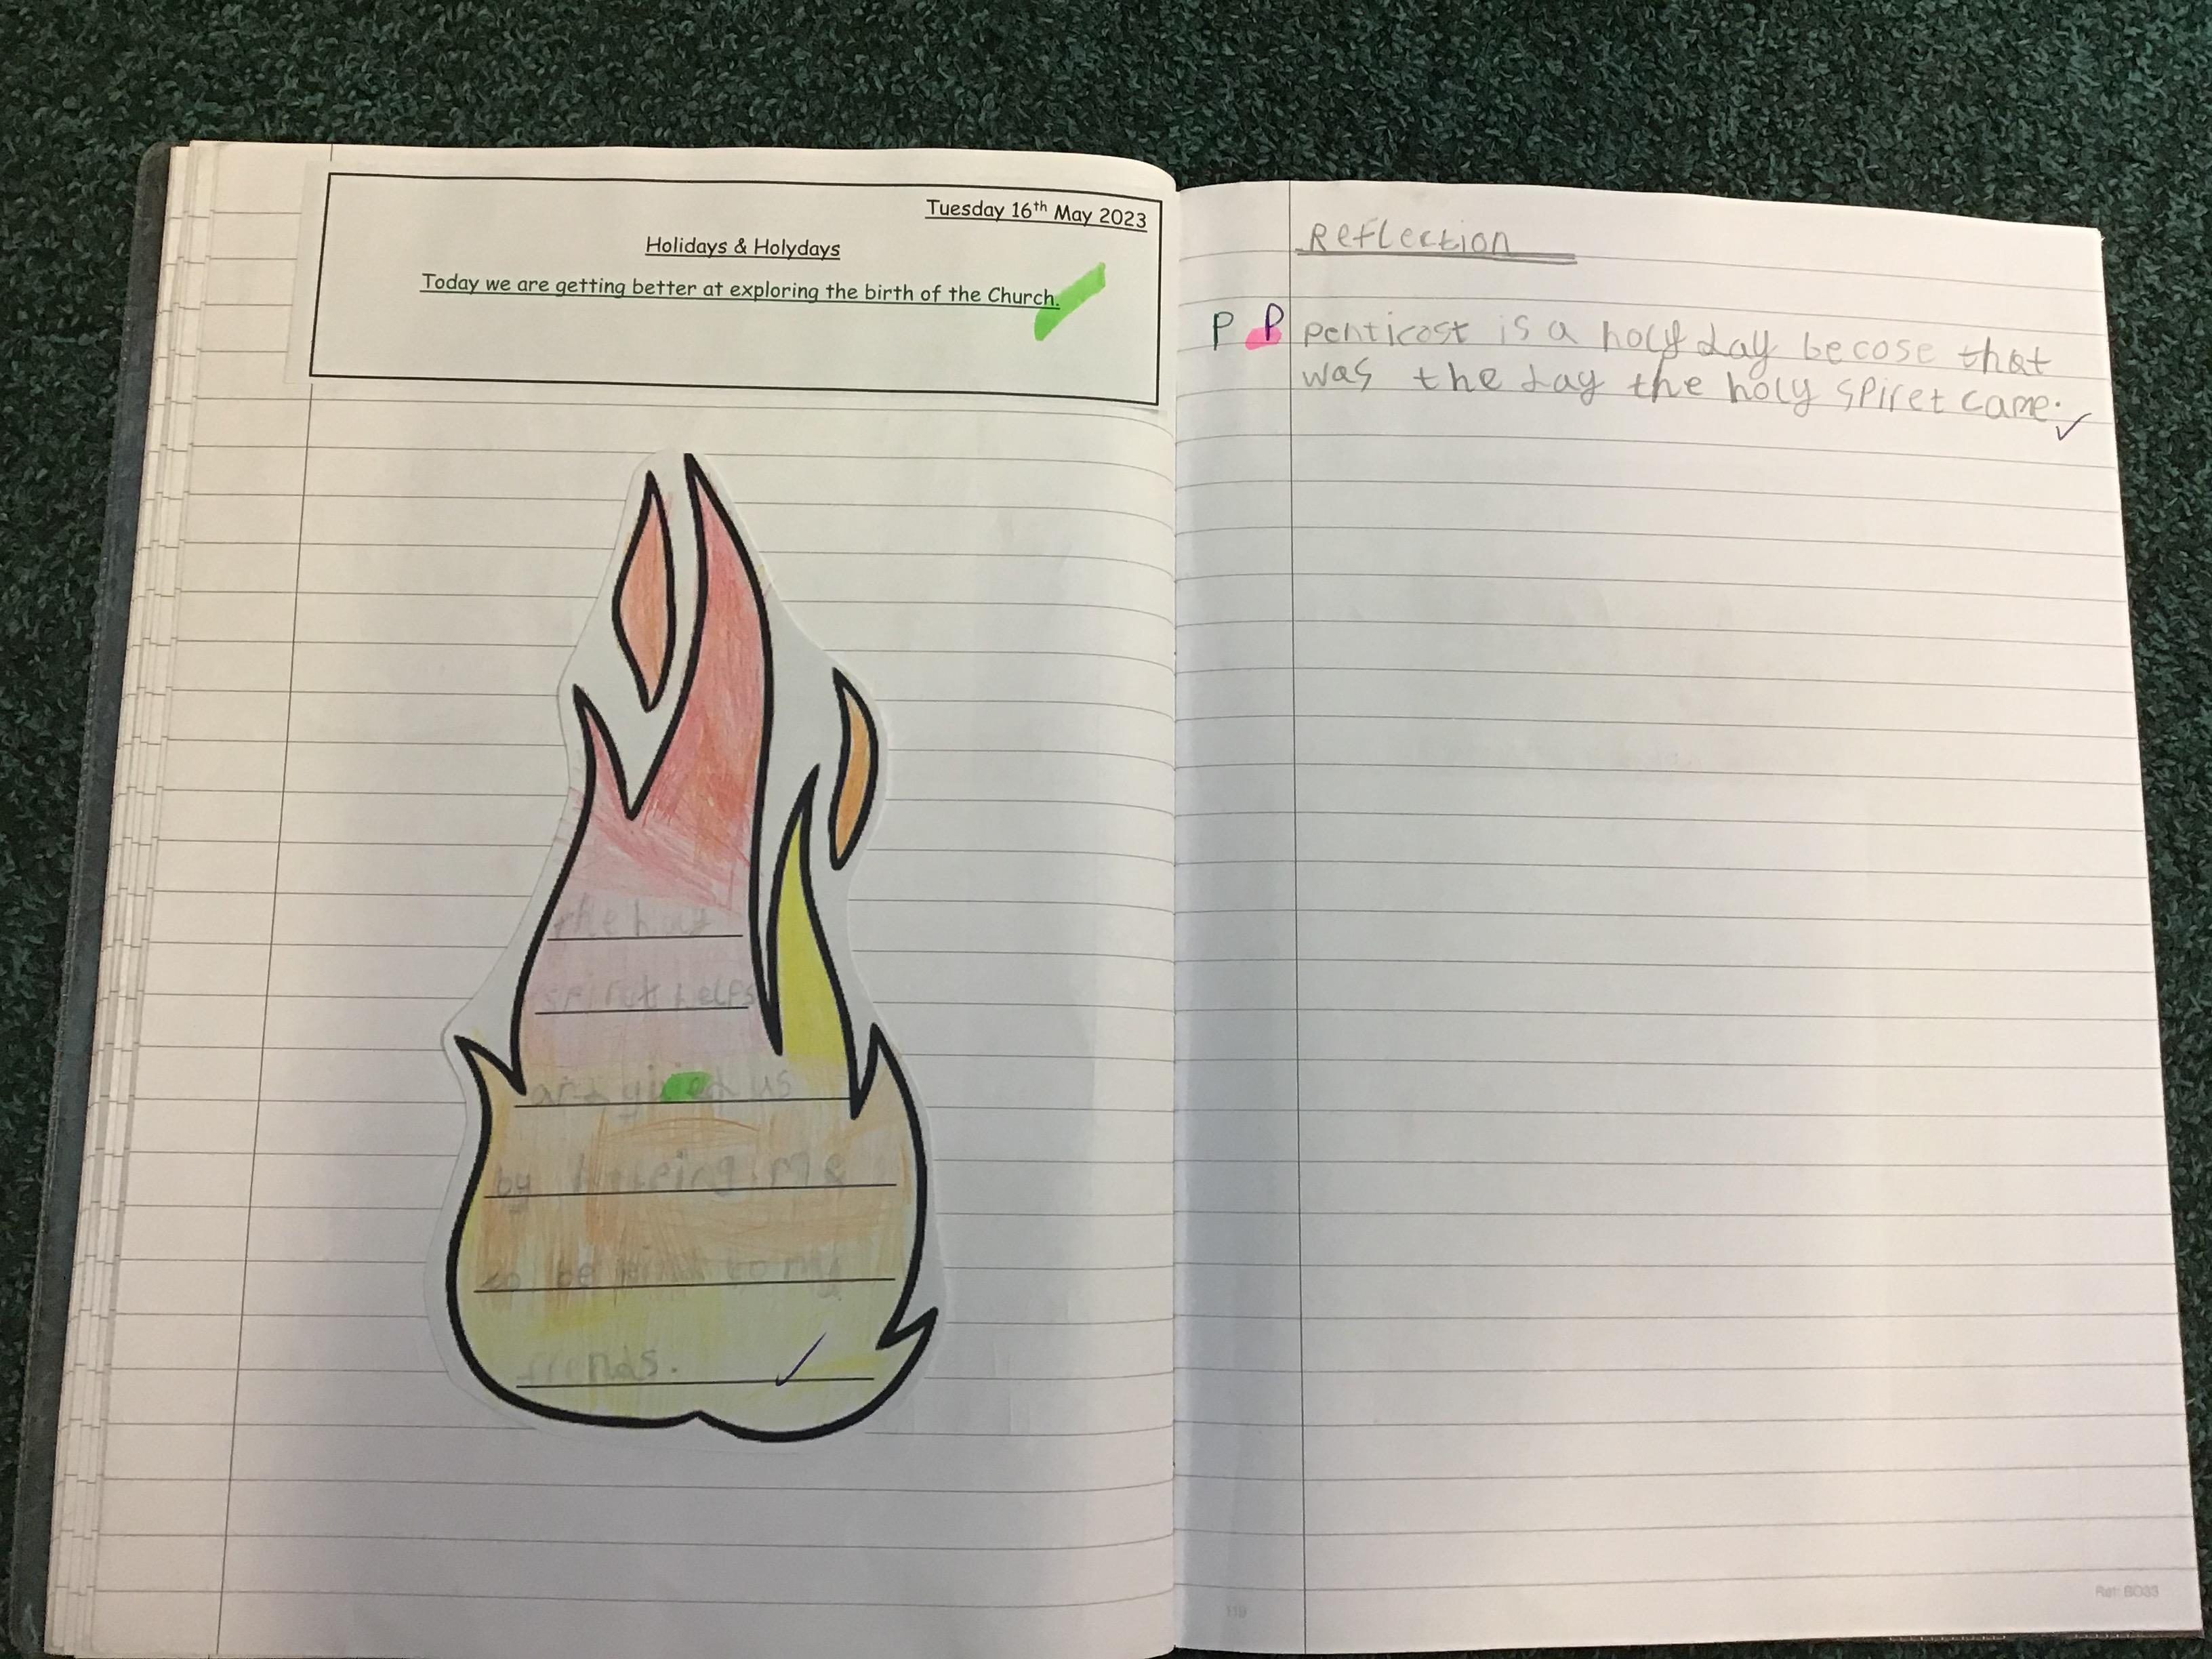 Tuesday 16th May 2023
Holidays & Holydays
Today we are getting better at exploring the birth of the Church.
the
spiret helps
and gived us
by helping me
to be kind to my
frends.
Reflection
P P penticost is a holy day becose that
was the day the holy spiret came.
119
Ref: BD33